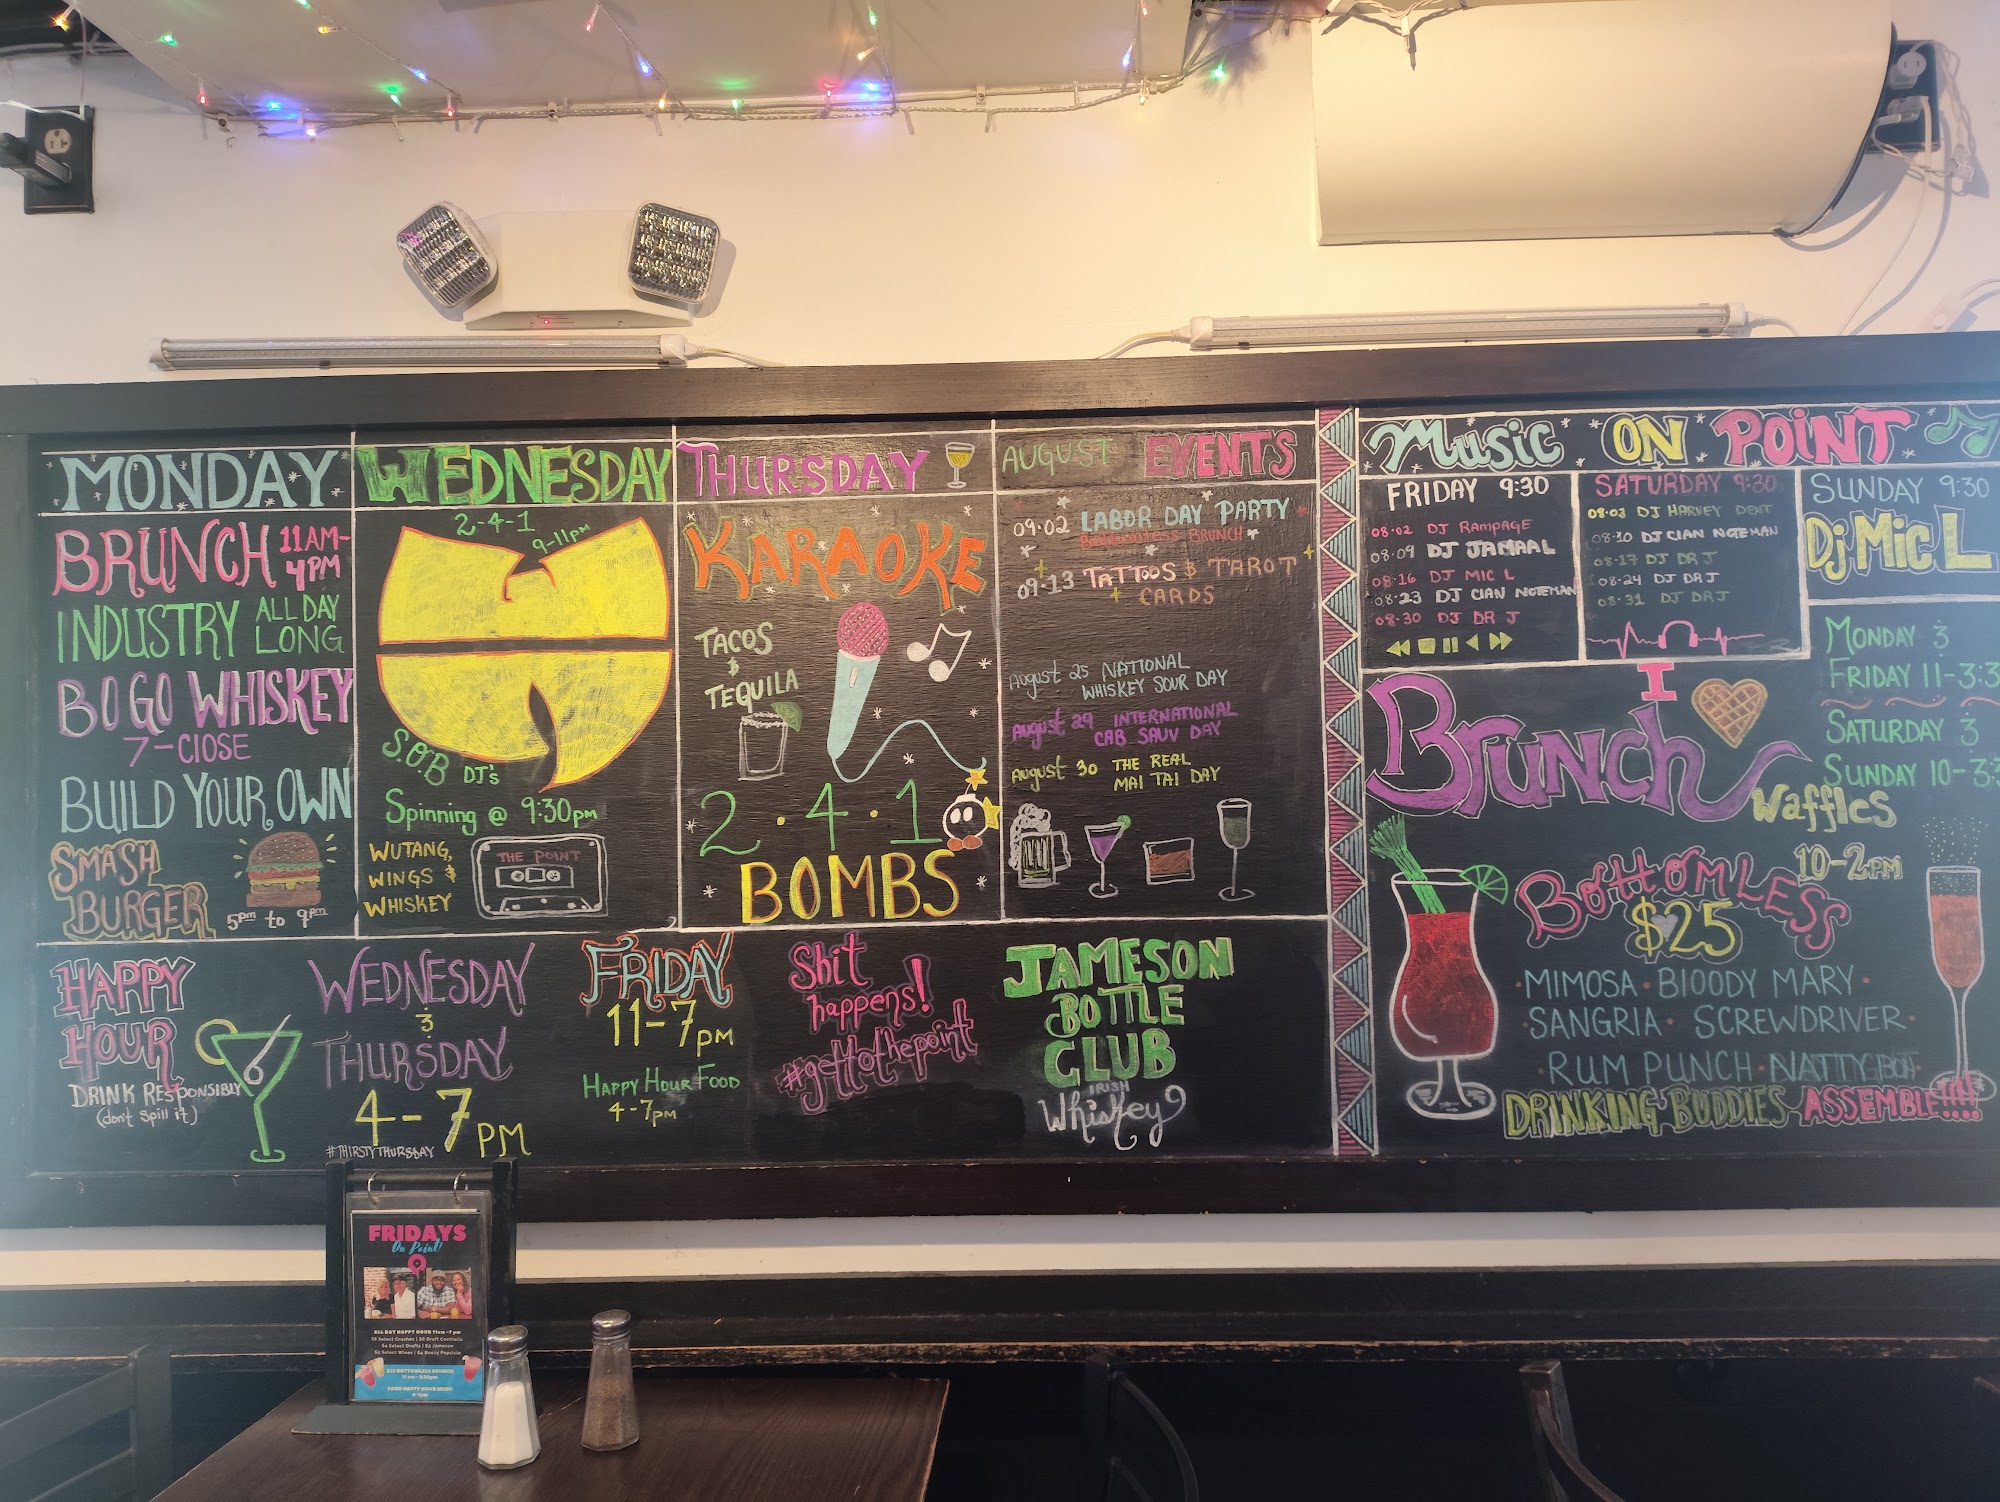 MONDAY
BRUNCH 11AM-4PM
INDUSTRY ALL DAY LONG
BOGO WHISKEY
7-CLOSE
BUILD YOUR OWN
SMASH
BURGER
5pm to 9pm
WEDNESDAY
2-4-1
9-11pm
S.O.B DJ's
Spinning @ 9:30pm
WUTANG,
WINGS &
WHISKEY
THE POINT
THURSDAY
KARAOKE
TACOS
&
TEQUILA
2.4.1
BOMBS
AUGUST EVENTS
09.02 LABOR DAY PARTY
Bottomless BRUNCH
09.13 TATTOOS & TAROT
CARDS
August 25 NATIONAL
WHISKEY SOUR DAY
August 29 INTERNATIONAL
CAB SAUV DAY
August 30 THE REAL
MAI TAI DAY
Music ON POINT
FRIDAY 9:30
08.02 DJ RAMPAGE
08.09 DJ JAMAAL
08.16 DJ MIC L
08.23 DJ CIAN NOTEMAN
08.30 DJ DR J
SATURDAY 9:30
08.03 DJ HARVEY DENT
08.10 DJ CIAN NOTEMAN
08.17 DJ DR J
08.24 DJ DR J
08.31 DJ DR J
SUNDAY 9:30
Dj Mic L
I
Brunch
Waffles
MONDAY &
FRIDAY 11-3:3
SATURDAY &
SUNDAY 10-3:3
10-2PM
BOTTOMLESS
$25
MIMOSA · BLOODY MARY ·
· SANGRIA · SCREWDRIVER ·
RUM PUNCH · NATTY BOH
DRINKING BUDDIES ASSEMBLE!!!!
HAPPY
HOUR
DRINK RESPONSIBLY
(don't spill it)
WEDNESDAY
&
THURSDAY
4-7PM
#THIRSTYTHURSDAY
FRIDAY
11-7PM
HAPPY HOUR FOOD
4-7PM
Shit
happens!
#gettothepoint
JAMESON
BOTTLE
CLUB
IRISH
Whiskey
FRIDAYS
On Point!
ALL DAY HAPPY HOUR 11am-7pm
$8 Select Crushes | $8 Draft Cocktails
$4 Select Drafts | $5 Jameson
$5 Select Wines | $4 Boozy Popsicle
$25 BOTTOMLESS BRUNCH
11am - 3:30pm
FOOD HAPPY HOUR MENU
4-7pm